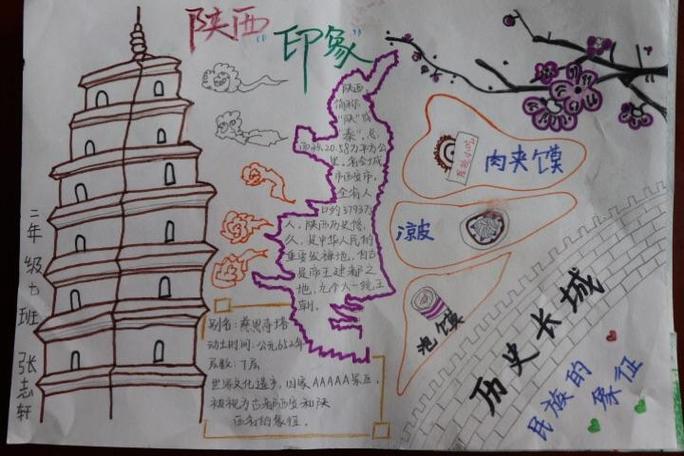 陕西"印象"
陕西
简称
"陕"或
秦",总
面积20.58万平方公
里,省会城
市西安市,
全省人
口约3793万
人,陕西历史悠
久,是中华人民的
重要发祥地,
是帝王建都之
地,九个人一统王
朝.
肉夹馍
凉皮
泡馍
历史长城
民族的
象征
别名:慈恩寺塔
动土时间:公元652年
层数:7层
世界文化遗产,国家AAAAA景区,
被视为古都西安和陕
西省的象征.
二年级
班
张志轩